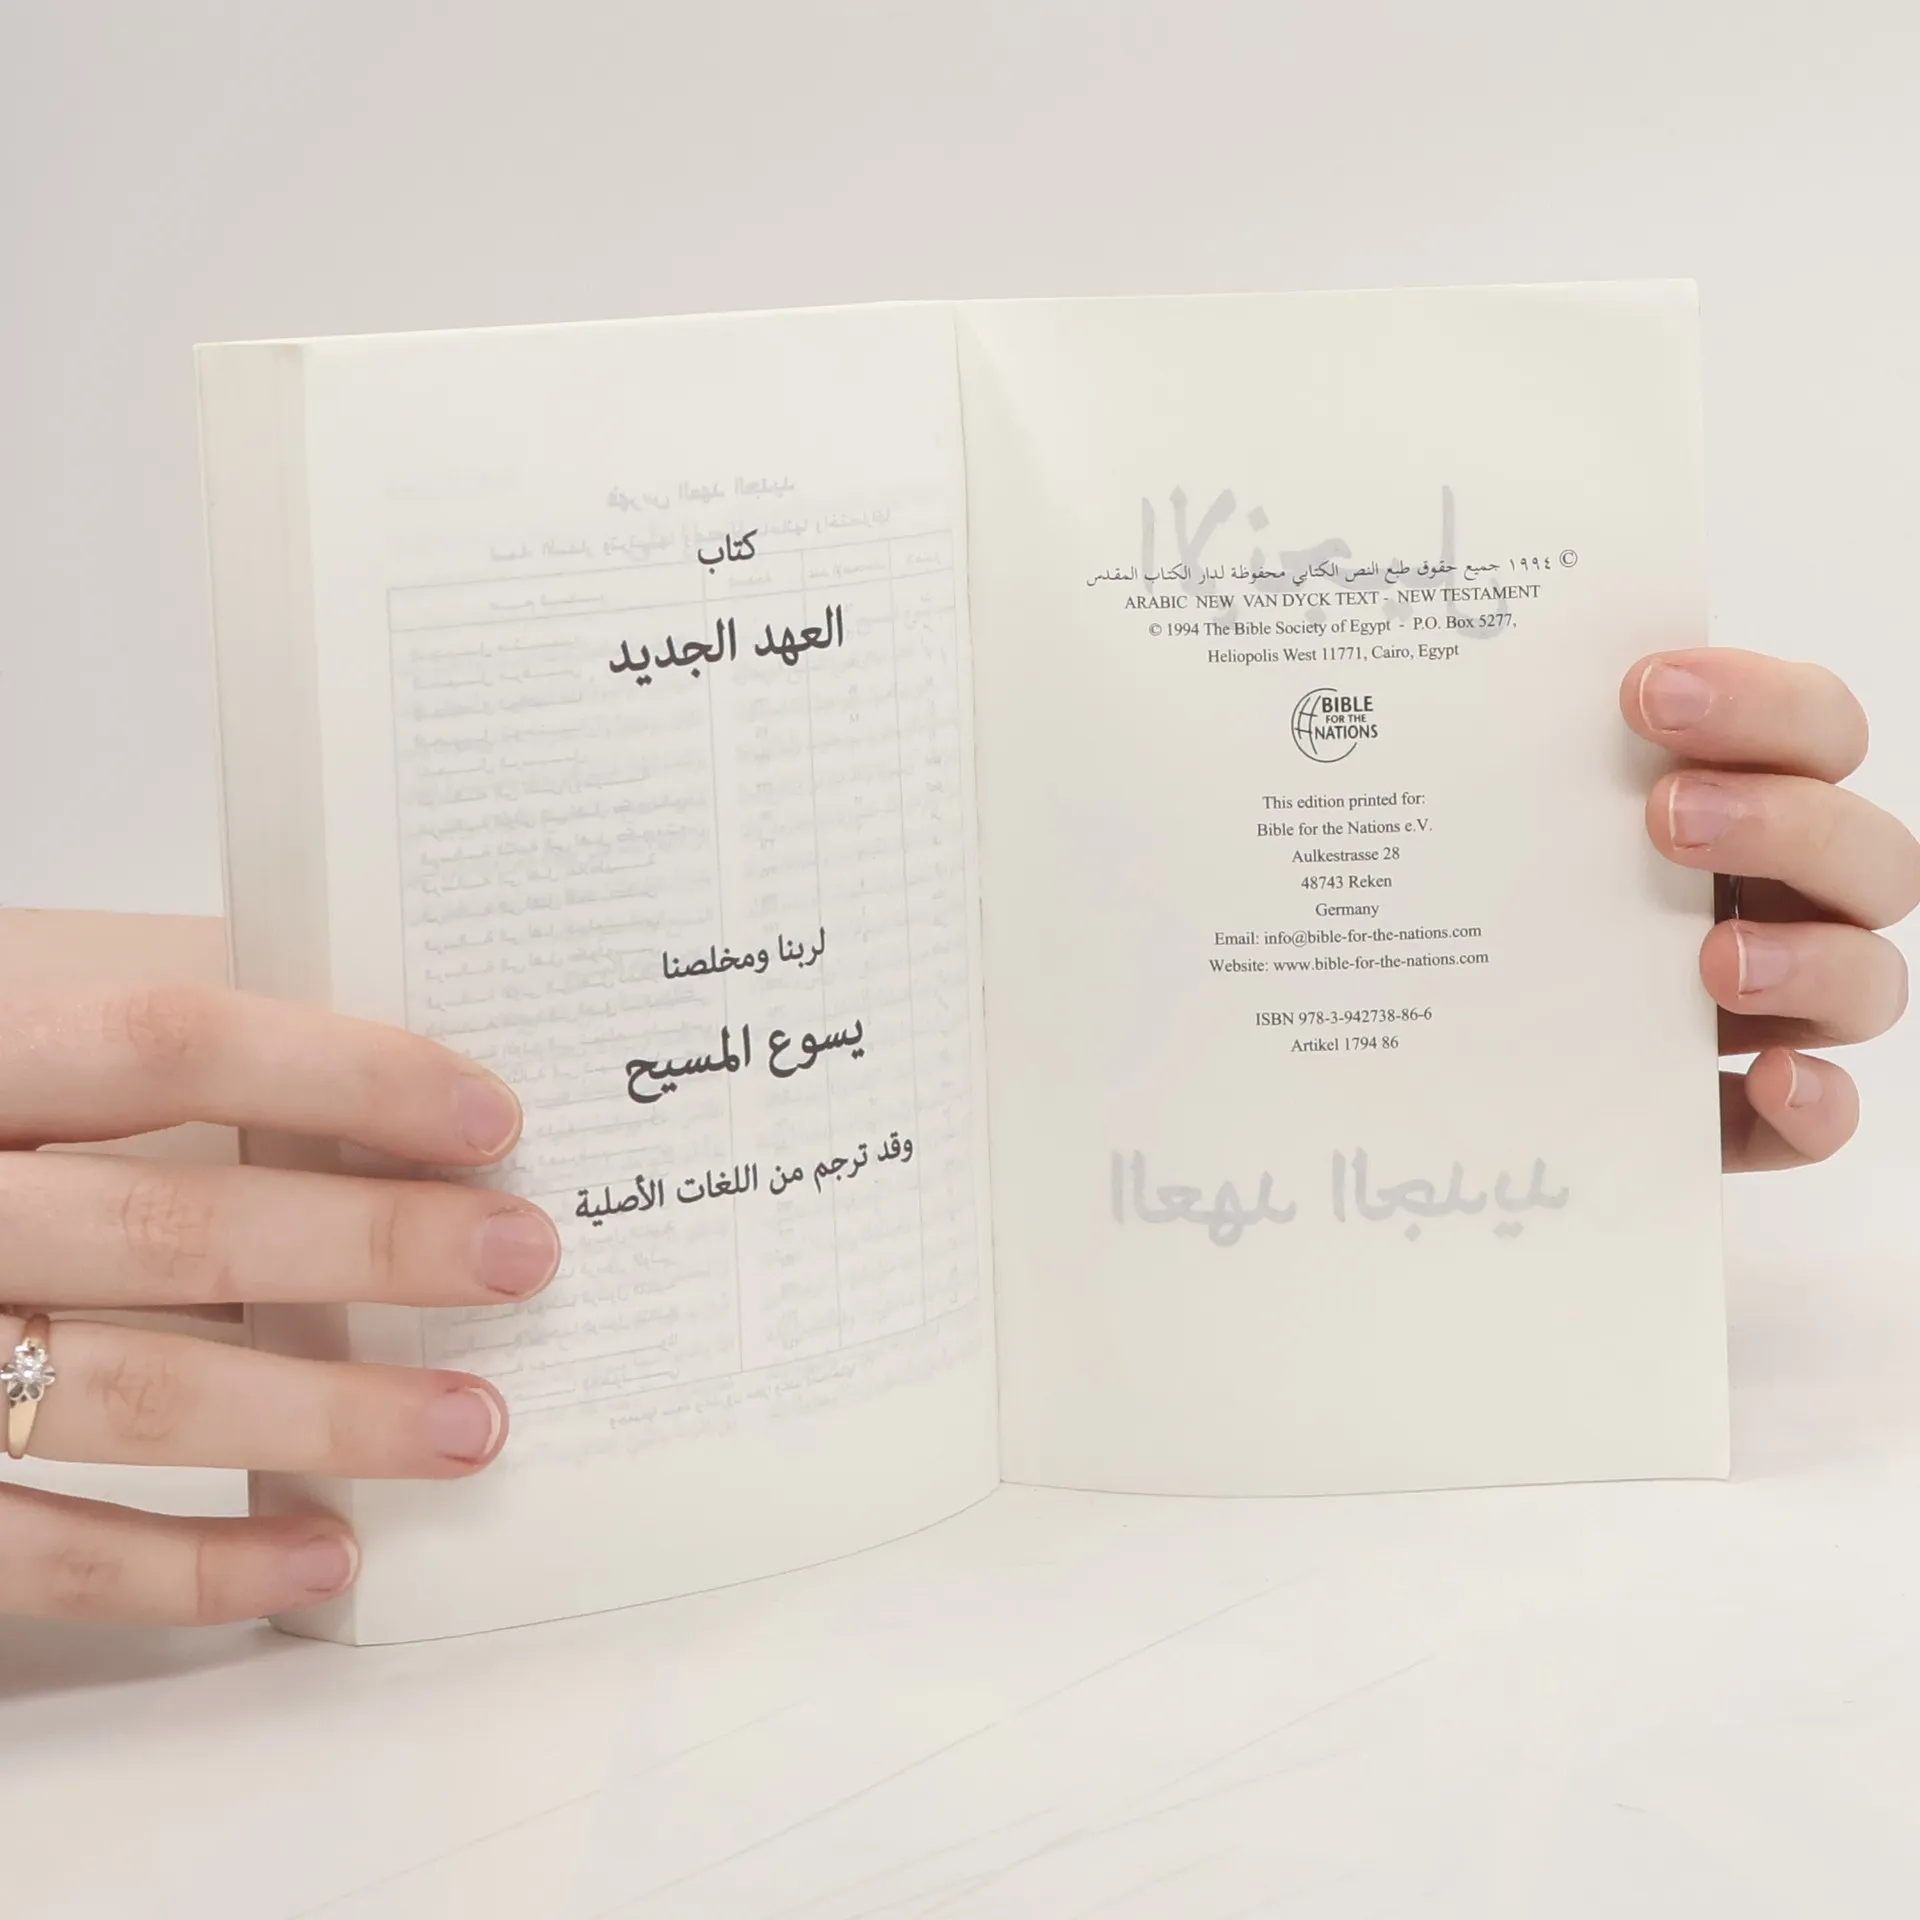 © ١٩٩٤ جميع حقوق طبع النص الكتابي محفوظة لدار الكتاب المقدس
ARABIC NEW VAN DYCK TEXT - NEW TESTAMENT
© 1994 The Bible Society of Egypt - P.O. Box 5277,
Heliopolis West 11771, Cairo, Egypt
BIBLE
FOR THE
NATIONS
This edition printed for:
Bible for the Nations e.V.
Aulkestrasse 28
48743 Reken
Germany
Email: info@bible-for-the-nations.com
Website: www.bible-for-the-nations.com
ISBN 978-3-942738-86-6
Artikel 1794 86
كتاب
العهد الجديد
لربنا ومخلصنا
يسوع المسيح
وقد ترجم من اللغات الأصلية